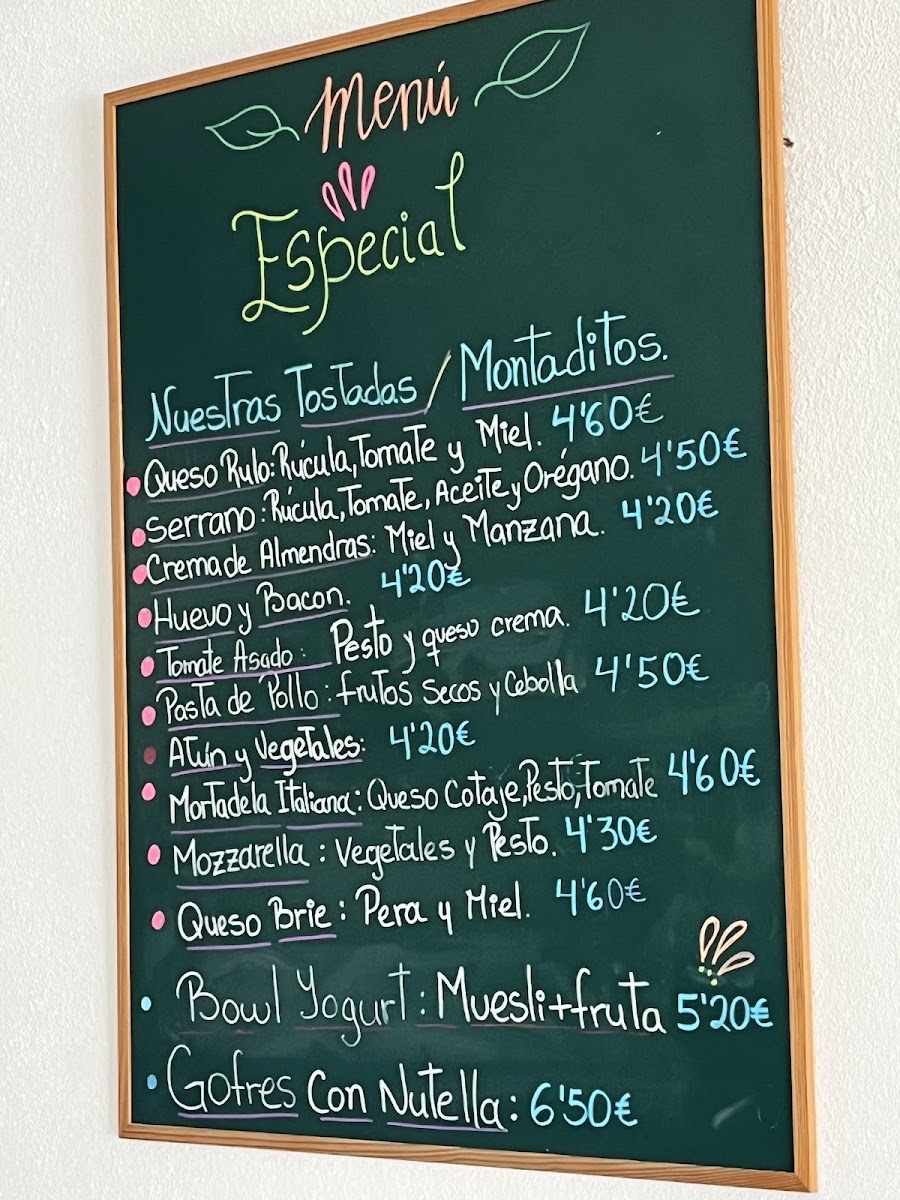 Menú
Especial
Nuestras Tostadas / Montaditos.
Queso Rulo: Rúcula, Tomate y Miel. 4'60€
Serrano: Rúcula, Tomate, Aceite y Orégano. 4'50€
Crema de Almendras: Miel y Manzana. 4'20€
Huevo y Bacon. 4'20€
Tomate Asado: Pesto y queso crema. 4'20€
Pasta de Pollo: frutos Secos y Cebolla 4'50€
Atún y Vegetales: 4'20€
Mortadela Italiana: Queso Cotaje, Pesto, Tomate 4'60€
Mozzarella: Vegetales y Pesto. 4'30€
Queso Brie: Pera y Miel. 4'60€
Bowl Yogurt: Muesli+fruta 5'20€
Gofres Con Nutella: 6'50€